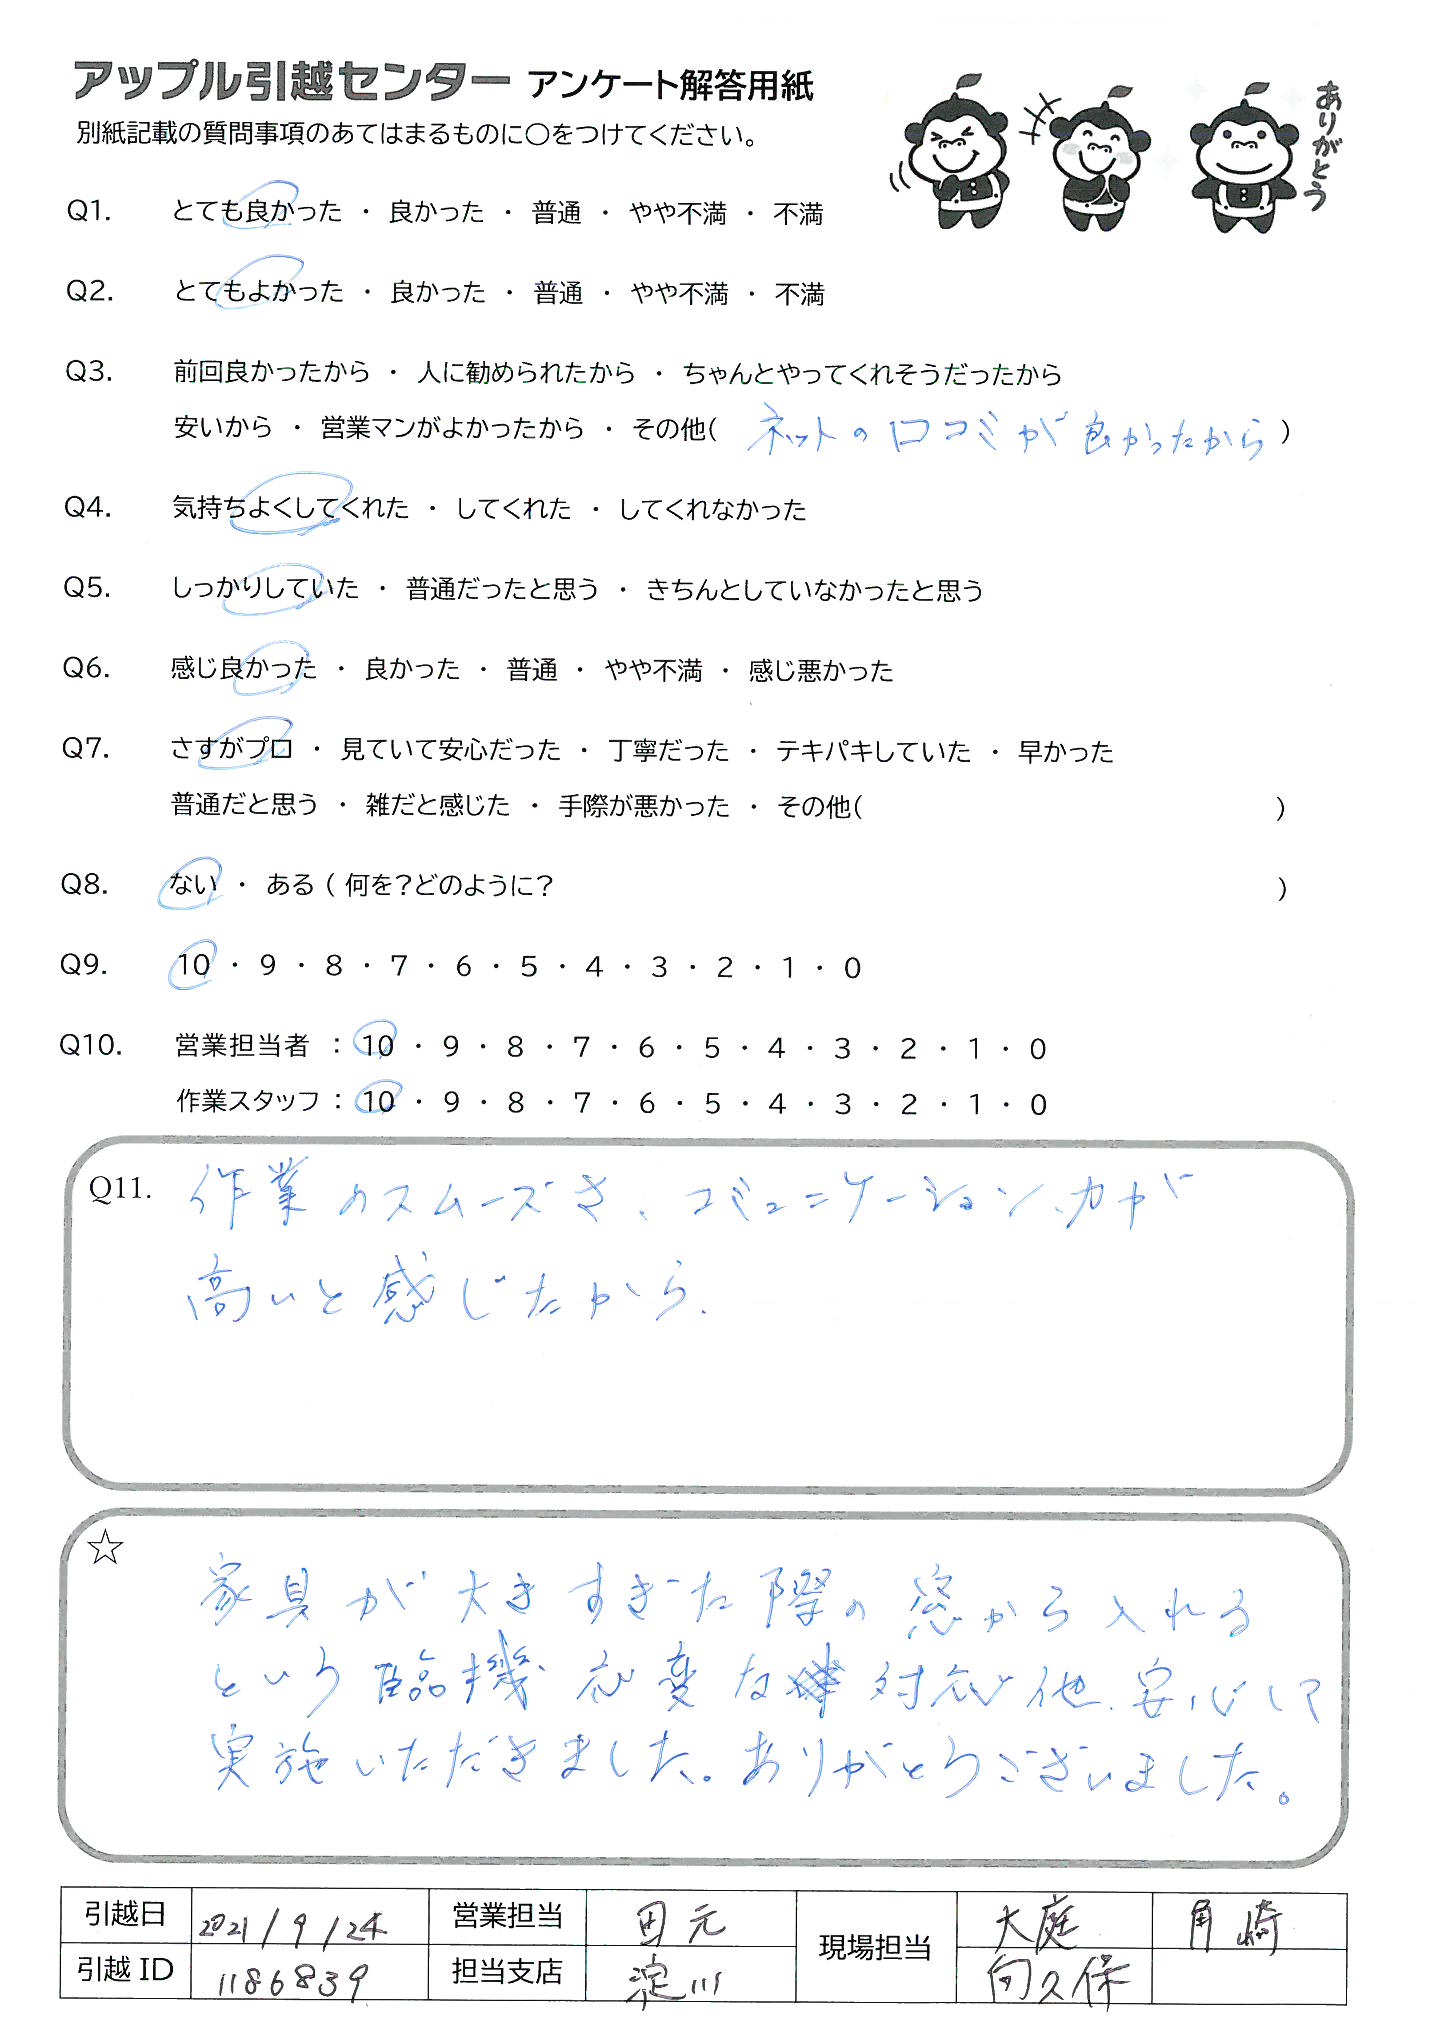 アップル引越センター アンケート解答用紙
別紙記載の質問事項のあてはまるものに○をつけてください。
ありがとう
Q1. とても良かった ・ 良かった ・ 普通 ・ やや不満 ・ 不満
Q2. とてもよかった ・ 良かった ・ 普通 ・ やや不満 ・ 不満
Q3. 前回良かったから ・ 人に勧められたから ・ ちゃんとやってくれそうだったから
安いから ・ 営業マンがよかったから ・ その他( ネットの口コミが良かったから )
Q4. 気持ちよくしてくれた ・ してくれた ・ してくれなかった
Q5. しっかりしていた ・ 普通だったと思う ・ きちんとしていなかったと思う
Q6. 感じ良かった ・ 良かった ・ 普通 ・ やや不満 ・ 感じ悪かった
Q7. さすがプロ ・ 見ていて安心だった ・ 丁寧だった ・ テキパキしていた ・ 早かった
普通だと思う ・ 雑だと感じた ・ 手際が悪かった ・ その他( )
Q8. ない ・ ある ( 何を?どのように? )
Q9. 10 ・ 9 ・ 8 ・ 7 ・ 6 ・ 5 ・ 4 ・ 3 ・ 2 ・ 1 ・ 0
Q10. 営業担当者 : 10 ・ 9 ・ 8 ・ 7 ・ 6 ・ 5 ・ 4 ・ 3 ・ 2 ・ 1 ・ 0
作業スタッフ : 10 ・ 9 ・ 8 ・ 7 ・ 6 ・ 5 ・ 4 ・ 3 ・ 2 ・ 1 ・ 0
Q11. 作業のスムーズさ、コミュニケーション力が
高いと感じたから.
☆ 家具が大きすぎた際の窓から入れる
という臨機応変な対応他、安心して
実施いただきました。ありがとうございました。
引越日 2021/9/24 営業担当 田元 現場担当 大庭 角崎
引越ID 1186839 担当支店 淀川 向久保